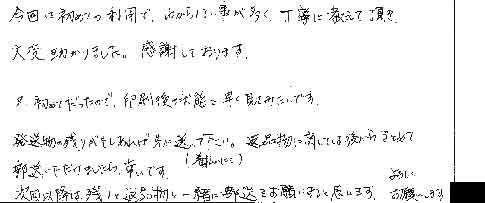 今回は初めての利用で、分からない事が多く、丁寧に教えて頂き
大変助かりました。感謝しております。
又、初めてだったので、印刷後の状態を早く見てみたいです。
発送物の残りがもしあれば先に送って下さい。返品物に関しては後からまとめて
(着払いにて)
郵送いただけましたら幸いです。
次回以降は残りと返品物を一緒に郵送をお願いすると思います。
よろしく
お願いします